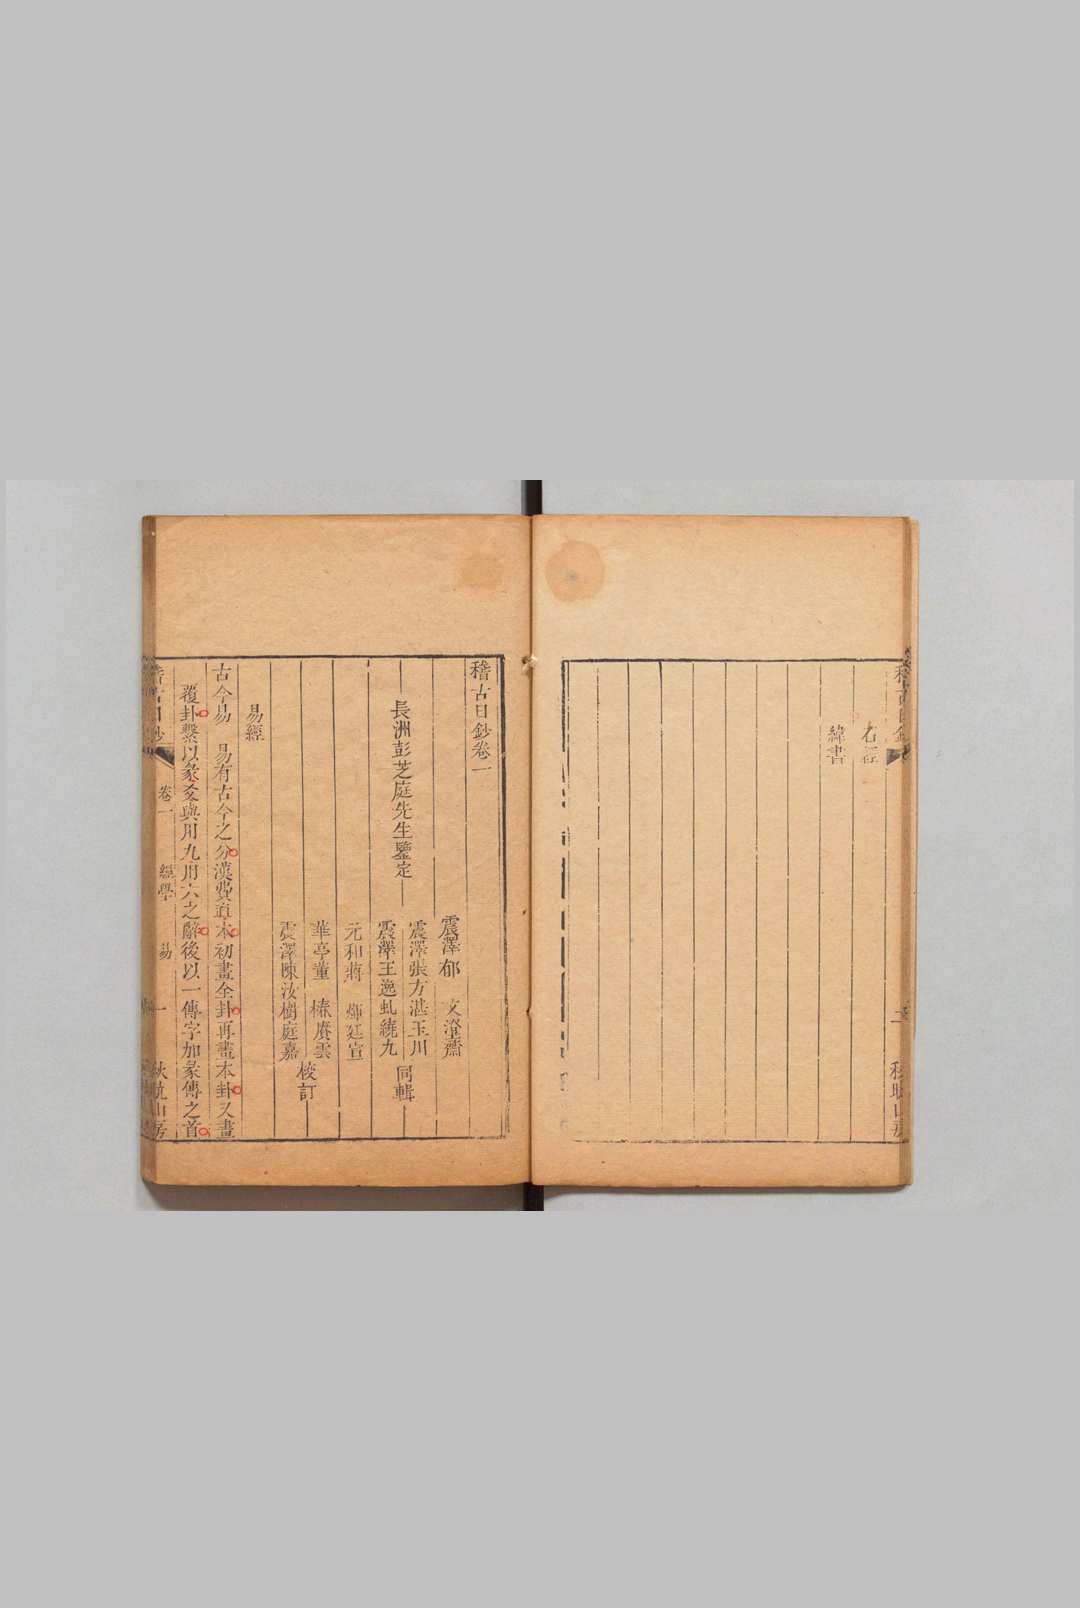 石經
緯書
稽古日鈔卷一
長洲彭芝庭先生鑒定
震澤郁 文
震澤張方湛玉川
震澤王逸虬繞九
同輯
元和蔣 廷宣
華亭董 椿賡雲
震澤陳汝樹庭嘉
校訂
易經
古今易 易有古今之分漢費直本初畫全卦再畫本卦又畫
覆卦繫以彖爻與用九用六之辭後以一傳字加彖傳之首
卷一 經學 易 一